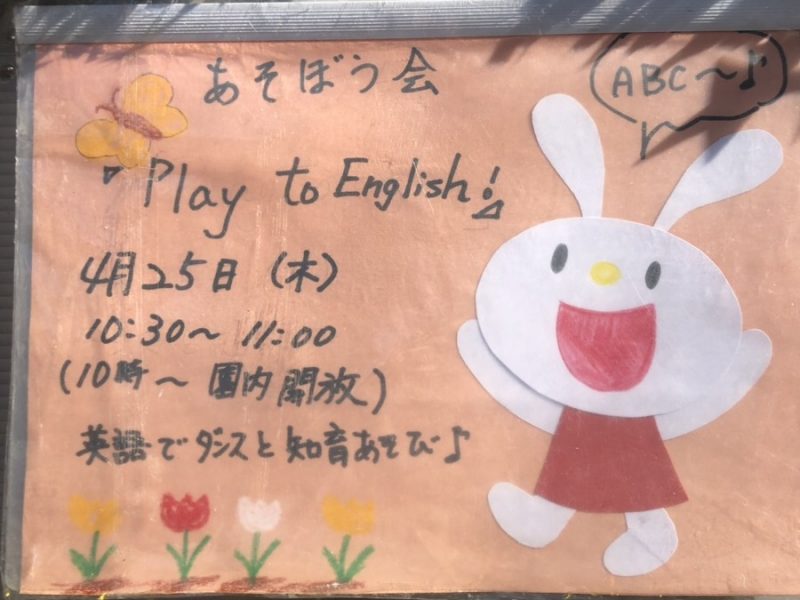 あそぼう会
ABC～♪
『Play to English!』
4月25日（木）
10:30～11:00
（10時～園内開放）
英語でダンスと知育あそび♪